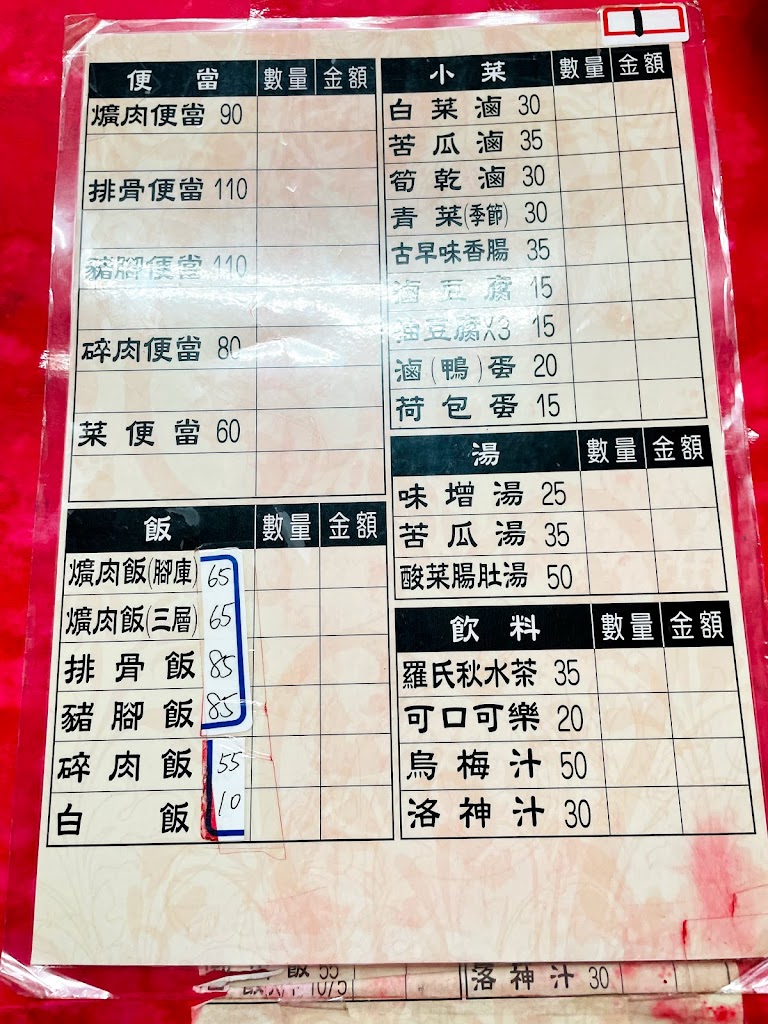 1
便當 數量 金額
爌肉便當 90
排骨便當 110
豬腳便當 110
碎肉便當 80
菜便當 60
飯 數量 金額
爌肉飯(腳庫) 65
爌肉飯(三層) 65
排骨飯 85
豬腳飯 85
碎肉飯 55
白飯 10
小菜 數量 金額
白菜滷 30
苦瓜滷 35
筍乾滷 30
青菜(季節) 30
古早味香腸 35
滷豆腐 15
油豆腐X3 15
滷(鴨)蛋 20
荷包蛋 15
湯 數量 金額
味增湯 25
苦瓜湯 35
酸菜腸肚湯 50
飲料 數量 金額
羅氏秋水茶 35
可口可樂 20
烏梅汁 50
洛神汁 30
飯 55
10/15
洛神汁 30